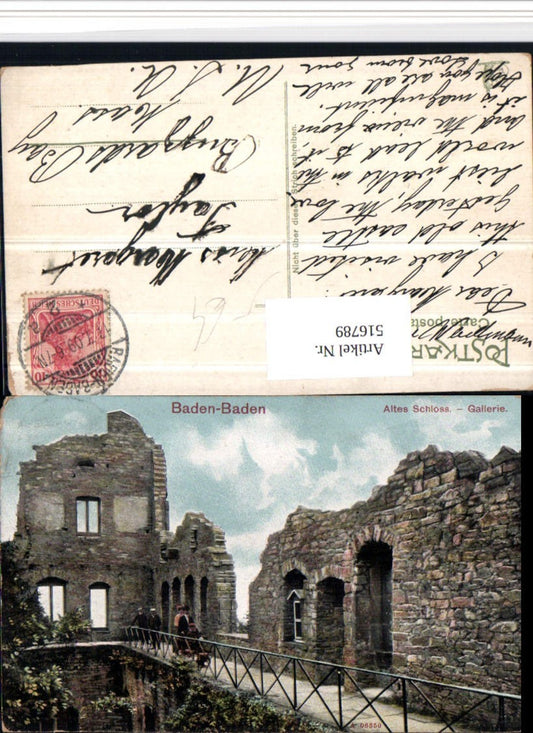 POSTKARTE
Carte postale
Nicht über diesen Strich schreiben.
Dear Margaret
I have visited
this old castle
yesterday, the
best walks in the
world lead to it
and the view from
it is magnificent.
Hope you are all well
Love from your
Miss Margaret
Taylor
Buzzards Bay
Mass
U. S. A.
DEUTSCHES REICH
10
BADEN-BADEN
64
Artikel Nr.
516789
Baden-Baden
Altes Schloss. – Gallerie.
06550